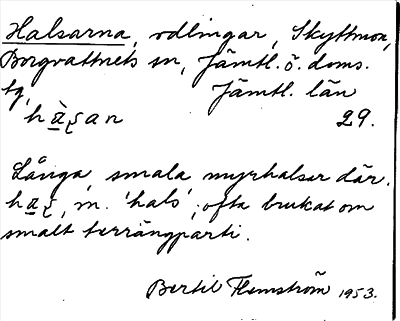 Halsarna, odlingar, Skyttmon,
Borgvattnets sn, Jämtl. ö. doms.
tg, Jämtl. län
29.
Långa, smala myrhalsar där.
m. 'hals', ofta brukat om
smalt terrängparti.
Bertil Flemström 1953.